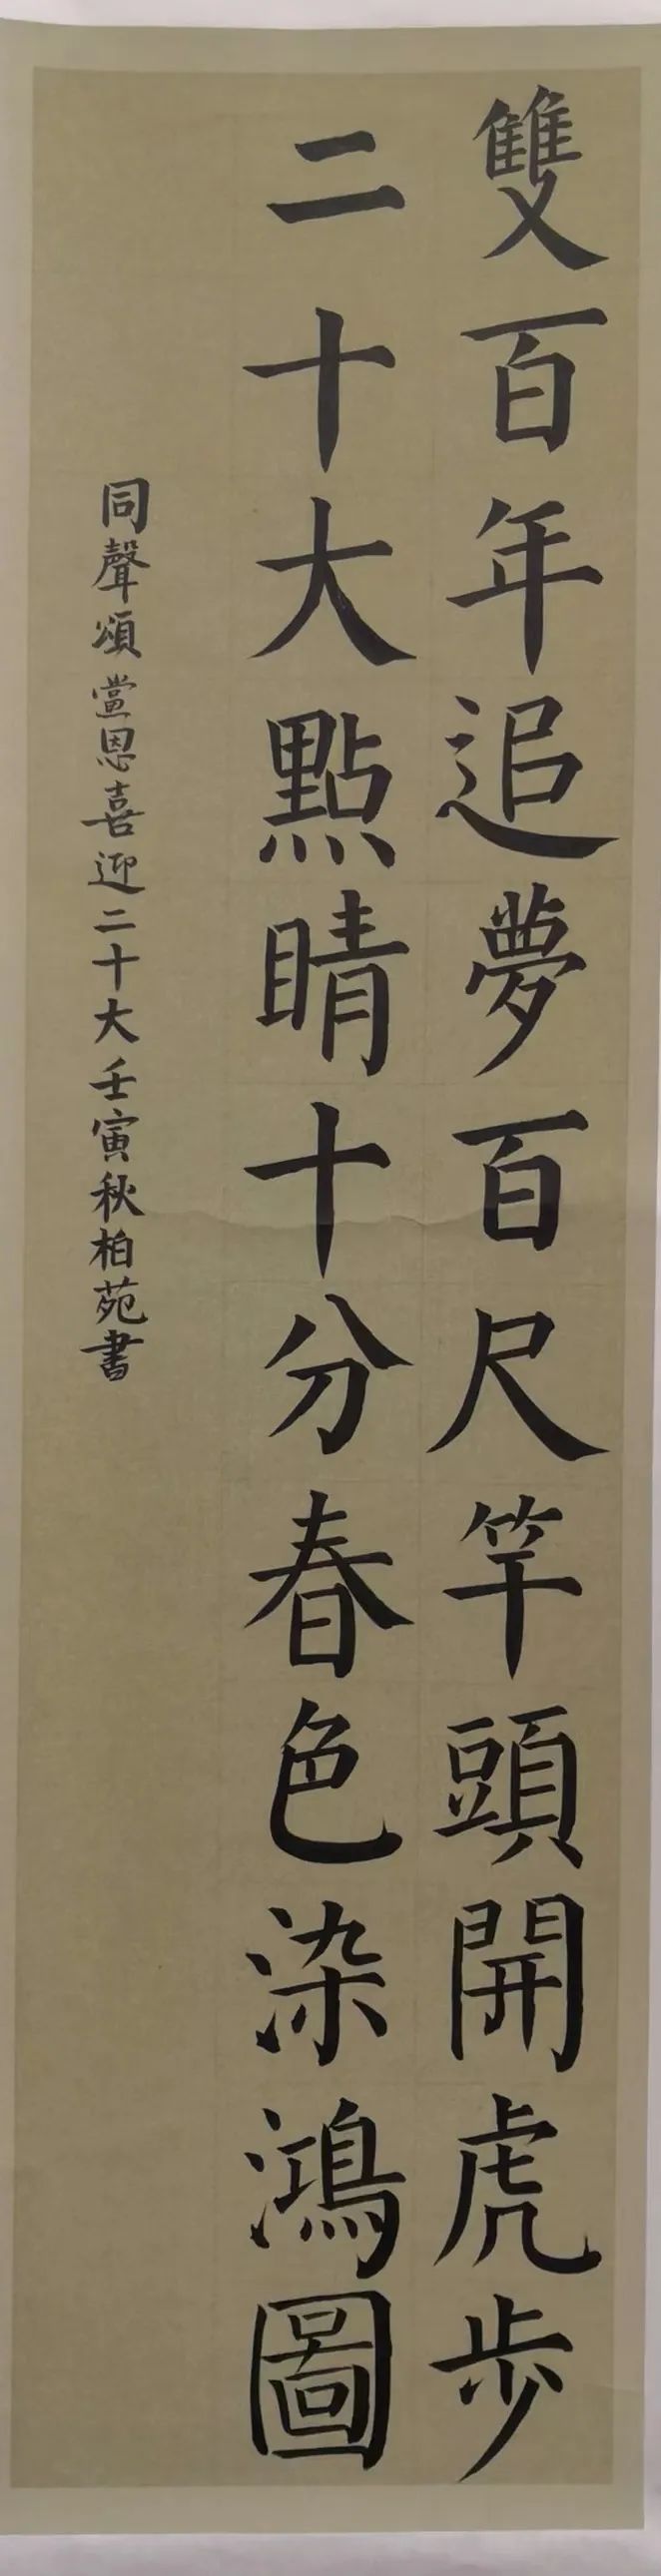 雙百年追夢百尺竿頭開虎步
二十大點睛十分春色染鴻圖
同聲頌黨恩喜迎二十大壬寅秋柏苑書